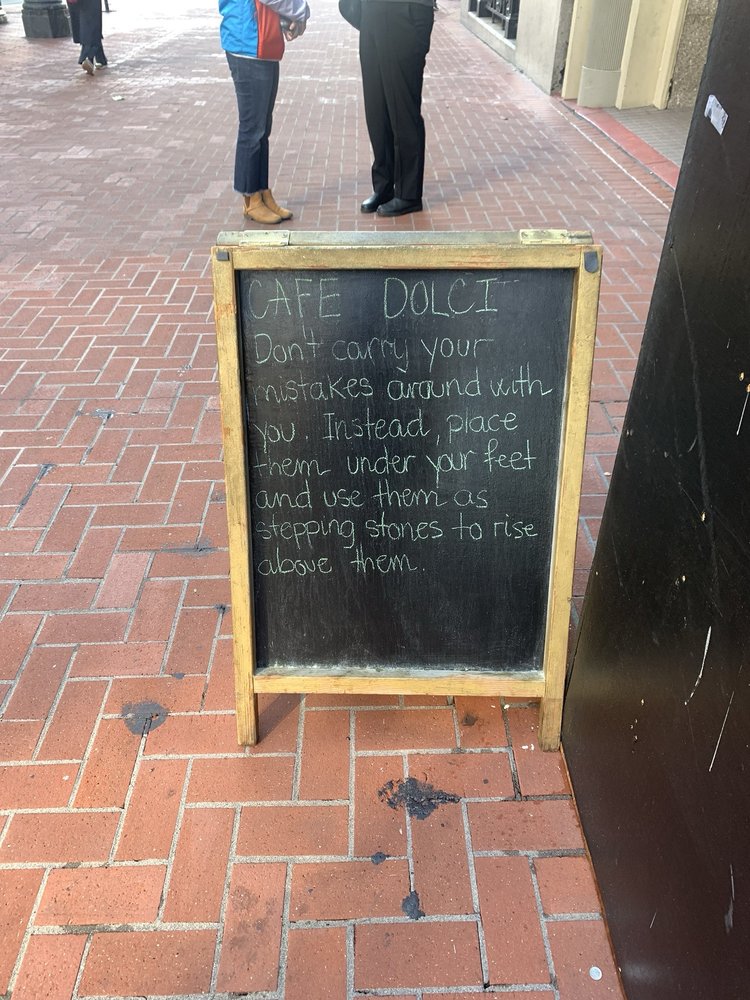 CAFE DOLCI
Don't carry your
mistakes around with
you. Instead, place
them under your feet
and use them as
stepping stones to rise
above them.